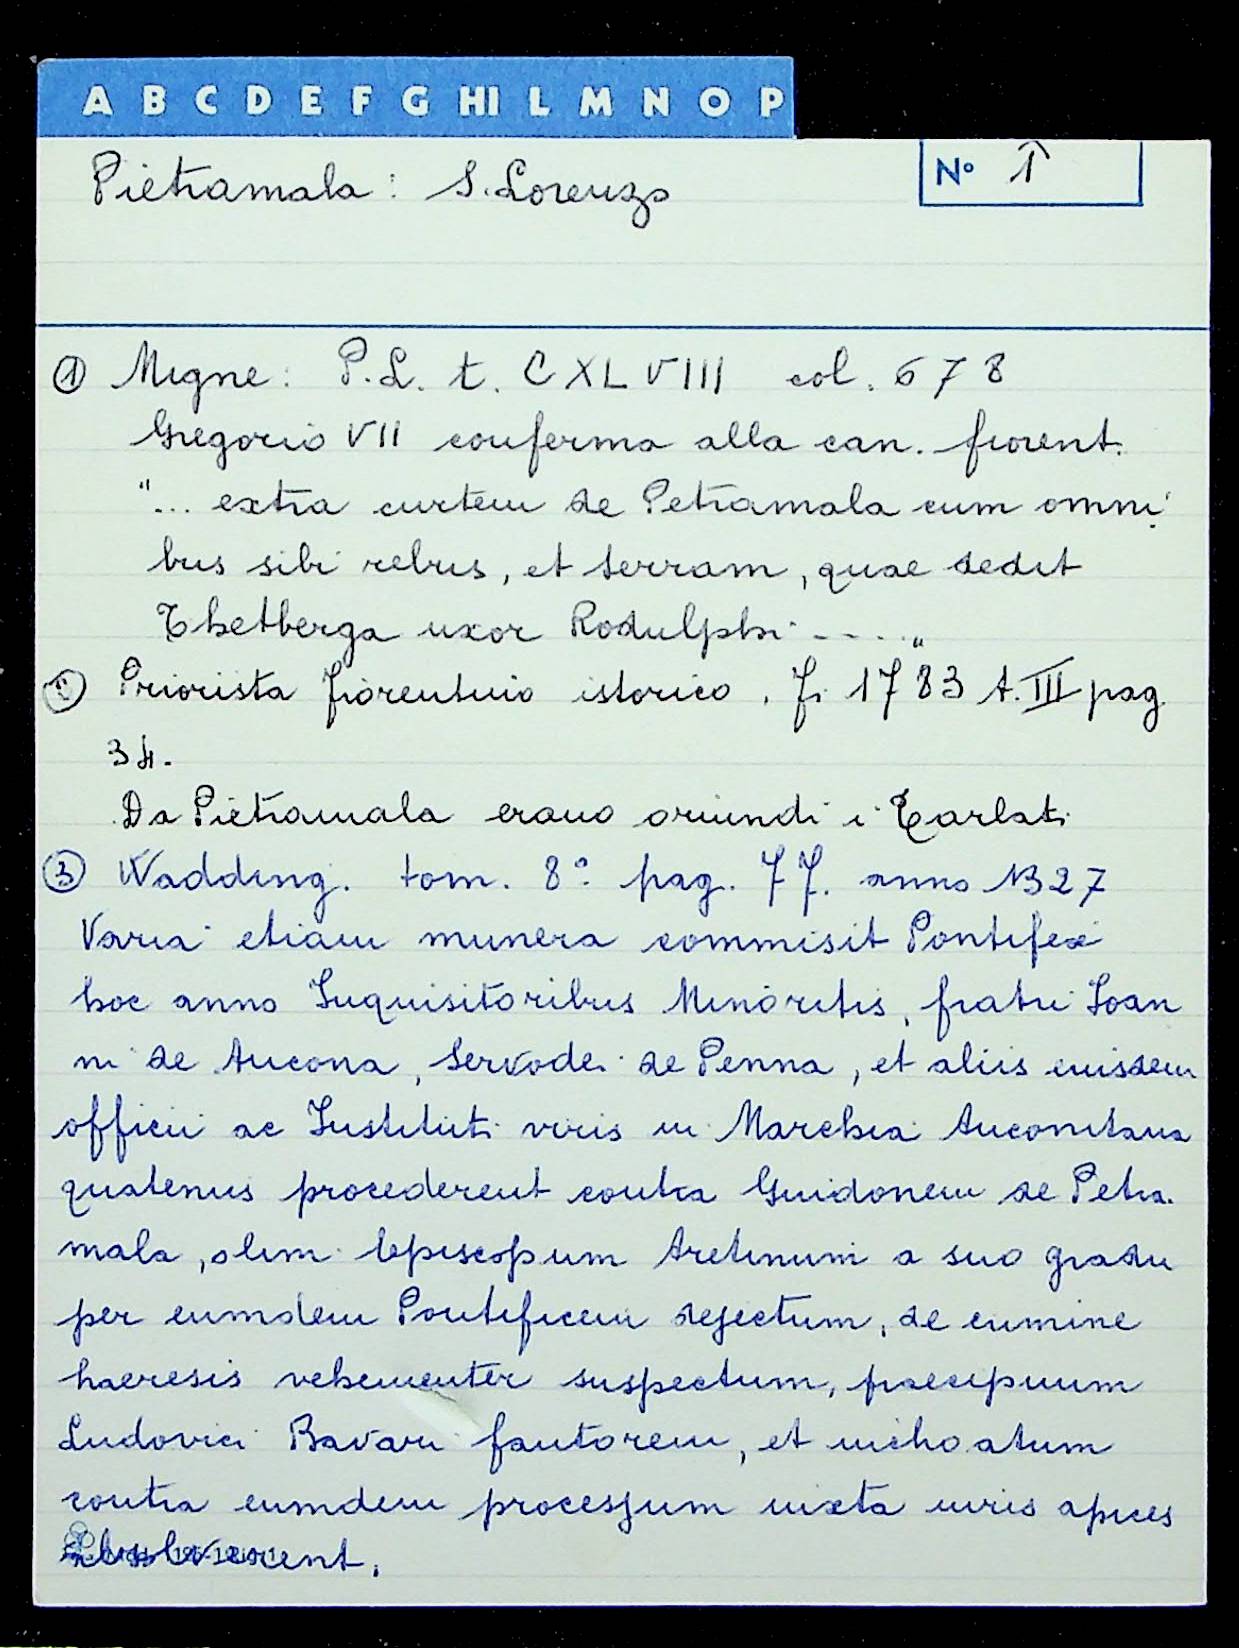 A B C D E F G HI L M N O P
Pietramala: S. Lorenzo
N° 1
① Migne: P.L. t. CXLVIII col. 678
Gregorio VII conferma alla can. fiorent.
"... extra curtem de Petramala cum omni
bus sibi rebus, et terram, quae dedit
Thetberga uxor Rodulphi ----"
② Priorista fiorentino istorico. Fi 1783 t. III pag
34.
Da Pietramala erano oriundi i Tarlati
③ Wadding. tom. 8° pag. 77. anno 1327
Varia etiam munera commisit Pontifex
hoc anno Inquisitoribus Minoritis, fratri Ioan
ni de Ancona, Servodei de Penna, et aliis eiusdem
officii ac Instituti viris in Marchia Anconitana
quatenus procederent contra Guidonem de Petra.
mala, olim Episcopum Aretinum a suo gradu
per eumdem Pontificem dejectum, de crimine
haeresis vehementer suspectum, praecipuum
Ludovici Bavari fautorem, et inchoatum
contra eumdem processum iuxta iuris apices
absolverent.